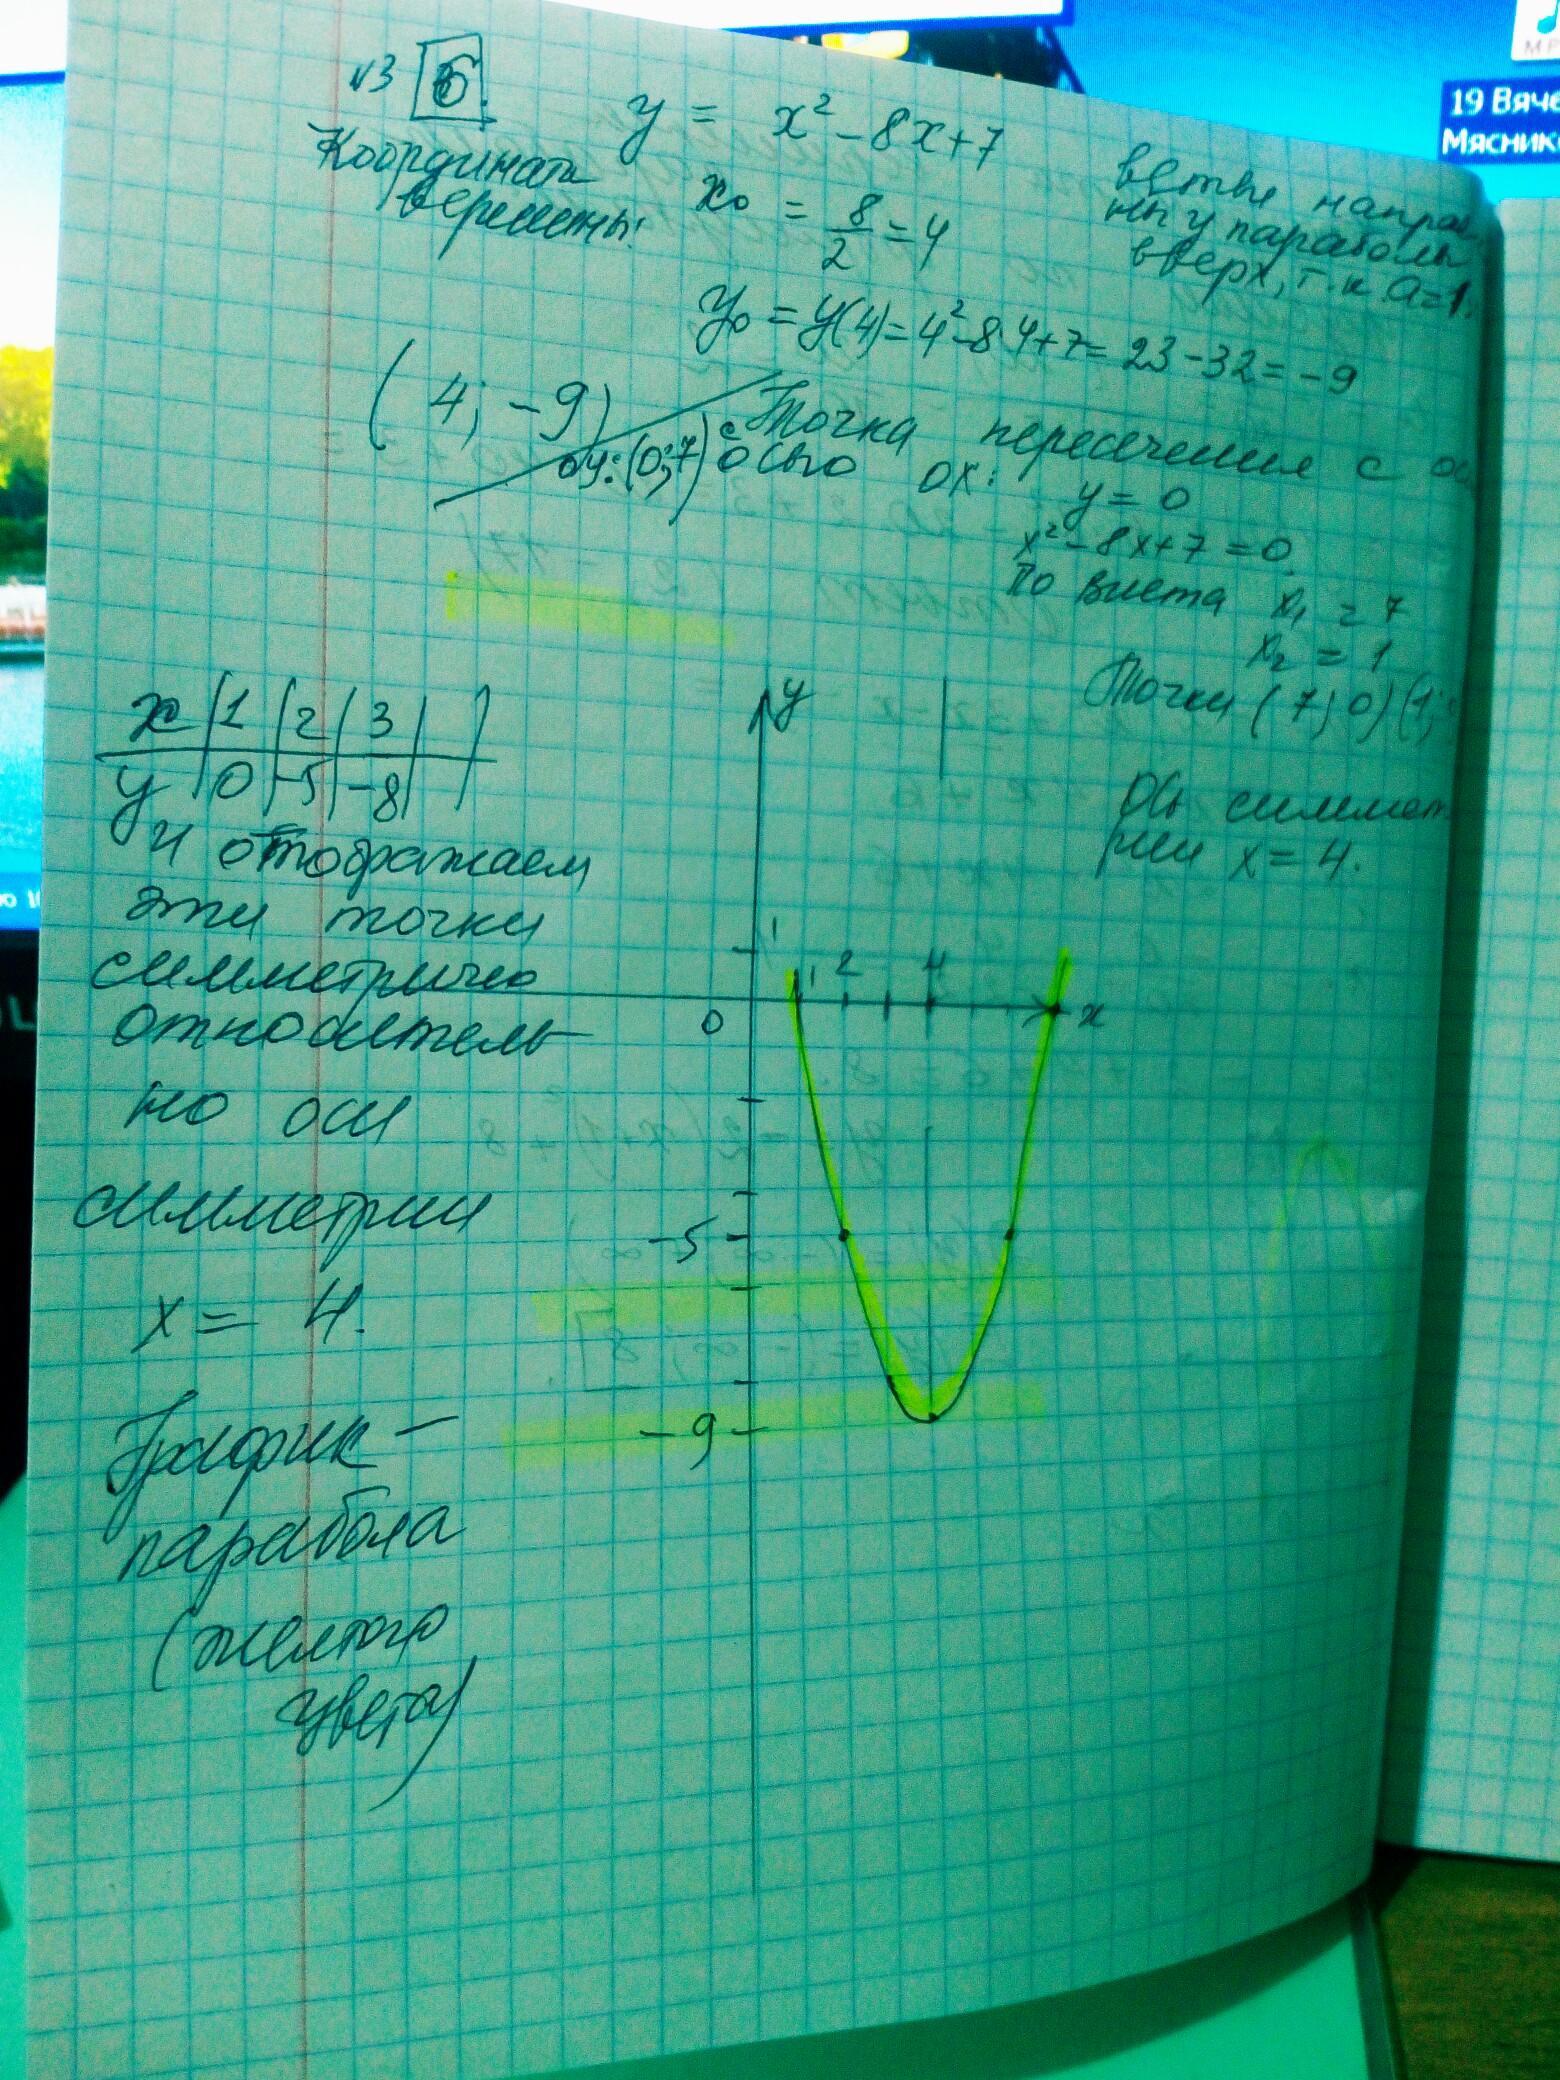 N3 б.
y = x² - 8x + 7
Координаты
вершины:
x₀ = 8/2 = 4
ветви направле-
ны у параболы
вверх, т.к. a = 1.
y₀ = y(4) = 4² - 8·4 + 7 = 23 - 32 = -9
(4; -9)
Точка пересечения с
оу: (0; 7) с осью ox: y = 0
x² - 8x + 7 = 0.
По Виета x₁ = 7
x₂ = 1
Точки (7; 0) (1;
Ось симмет
рии x = 4.
x | 1 | 2 | 3 |
y | 0 | -5 | -8 |
и отображаем
эти точки
симметрично
относитель
но оси
симметрии
x = 4.
График -
парабола
(желтого
цвета)
y
1
1 2 4
0 x
-5
-9
19 Вяче
Мясник
MP